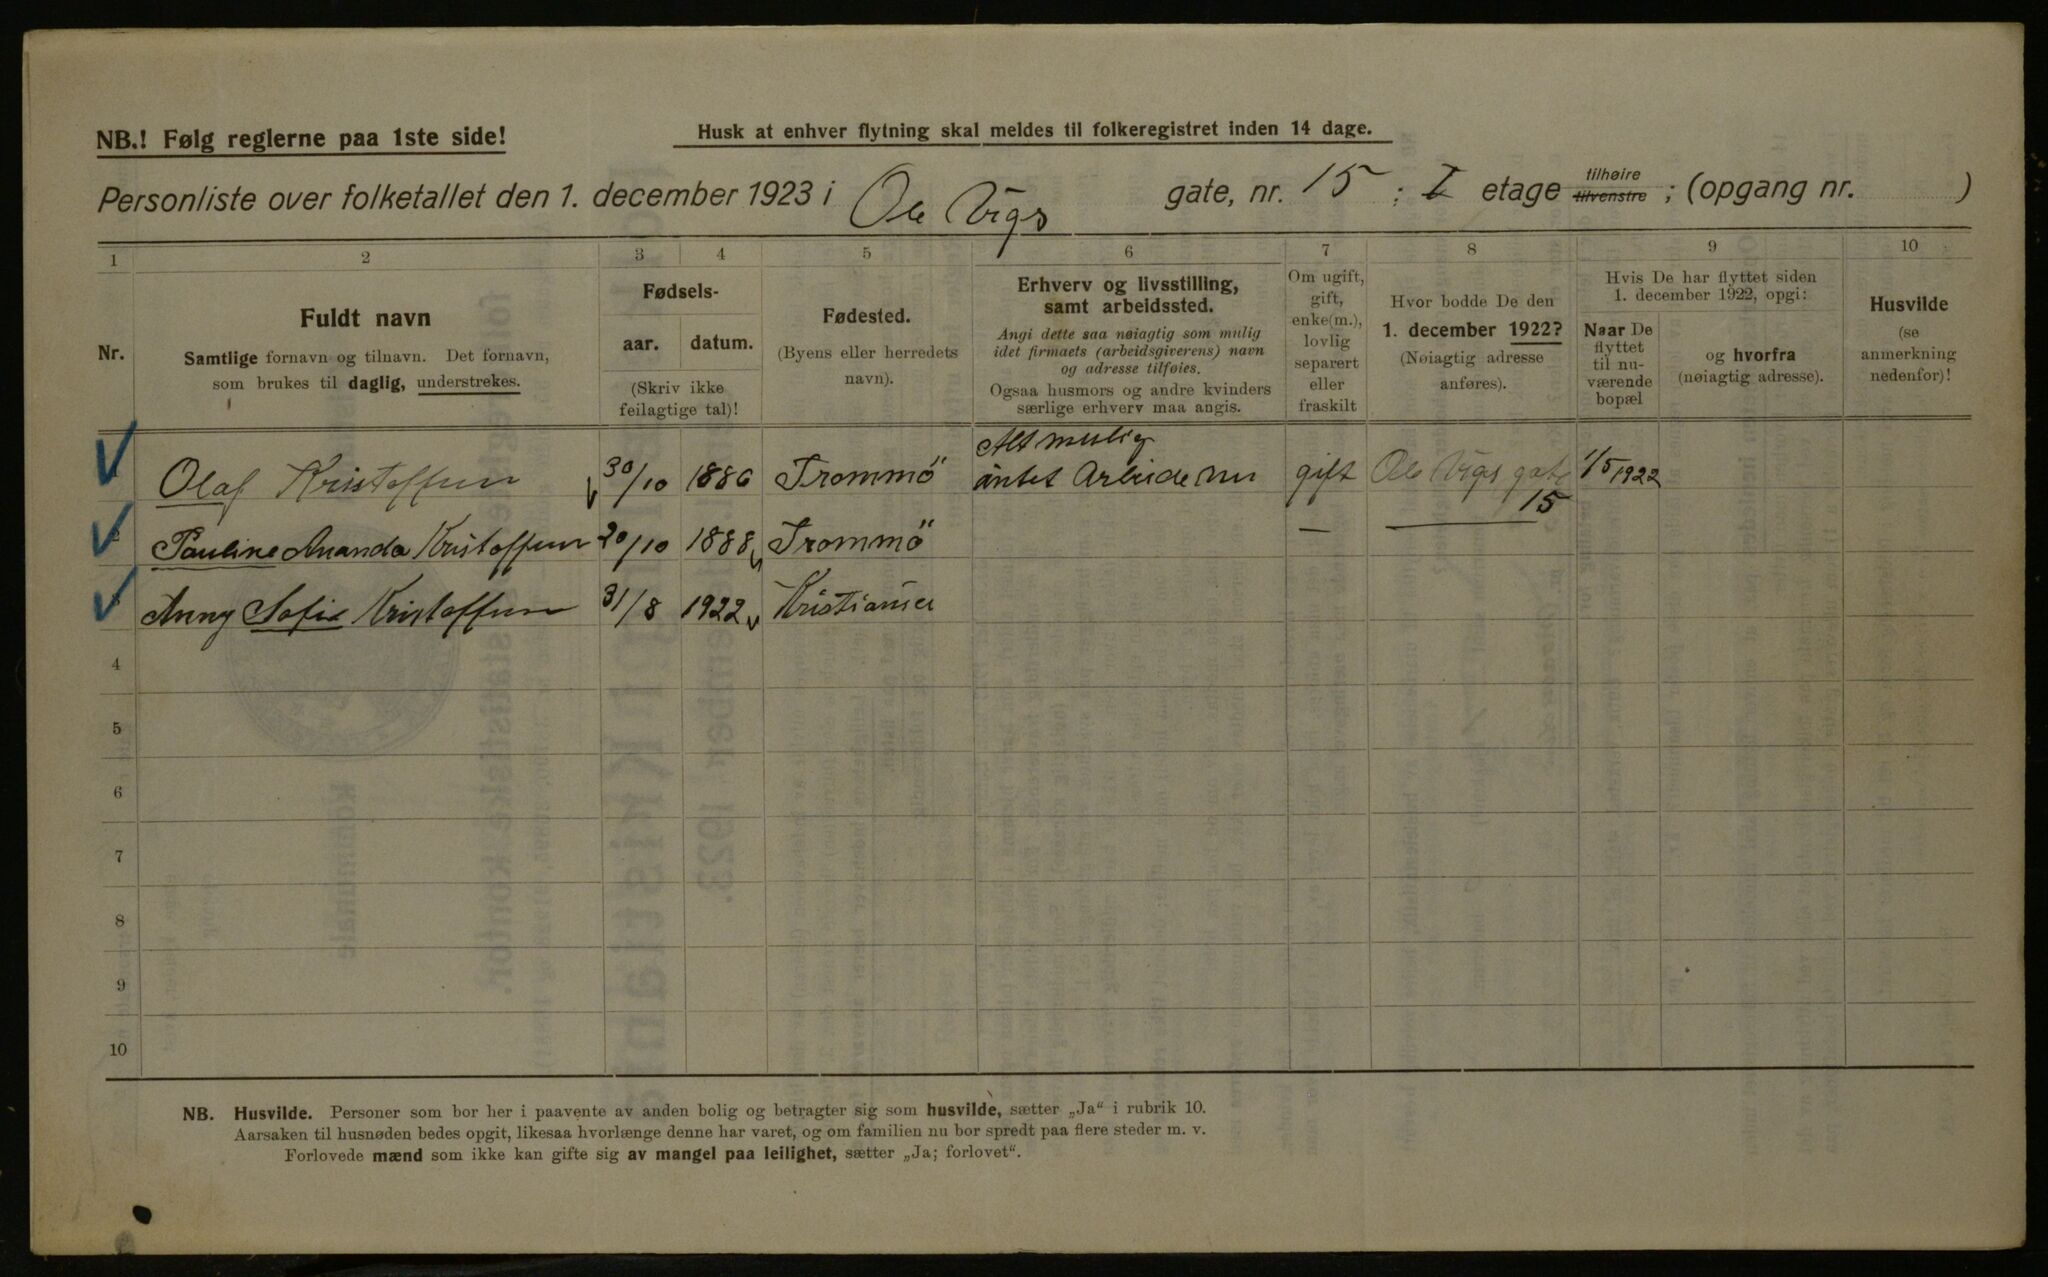 NB.! Følg reglerne paa 1ste side!
Husk at enhver flytning skal meldes til folkeregistret inden 14 dage.
Personliste over folketallet den 1. december 1923 i Ole Vigs gate, nr. 15 ; I etage tilhøire tilvenstre ; (opgang nr. )
1 2 3 4 5 6 7 8 9 10
Nr.
Fuldt navn
Samtlige fornavn og tilnavn. Det fornavn,
som brukes til daglig, understrekes.
Fødsels-
aar. datum.
(Skriv ikke
feilagtige tal)!
Fødested.
(Byens eller herredets
navn).
Erhverv og livsstilling,
samt arbeidssted.
Angi dette saa nøiagtig som mulig
idet firmaets (arbeidsgiverens) navn
og adresse tilføies.
Ogsaa husmors og andre kvinders
særlige erhverv maa angis.
Om ugift,
gift,
enke(m.),
lovlig
separert
eller
fraskilt
Hvor bodde De den
1. december 1922?
(Nøiagtig adresse
anføres).
Hvis De har flyttet siden
1. december 1922, opgi:
Naar De
flyttet
til nu-
værende
bopæl
og hvorfra
(nøiagtig adresse).
Husvilde
(se
anmerkning
nedenfor)!
Alt mulig
Olaf Kristoffersen 30/10 1886 Trommö intet Arbeide nu gift Ole Vigs gate 1/5 1922
15
Pauline Amanda Kristoffersen 20/10 1888 Trommö —
Anny Sofie Kristoffersen 31/8 1922 Kristiania
4
5
6
7
8
9
10
NB. Husvilde. Personer som bor her i paavente av anden bolig og betragter sig som husvilde, sætter „Ja" i rubrik 10.
Aarsaken til husnøden bedes opgit, likesaa hvorlænge denne har varet, og om familien nu bor spredt paa flere steder m. v.
Forlovede mænd som ikke kan gifte sig av mangel paa leilighet, sætter „Ja; forlovet".